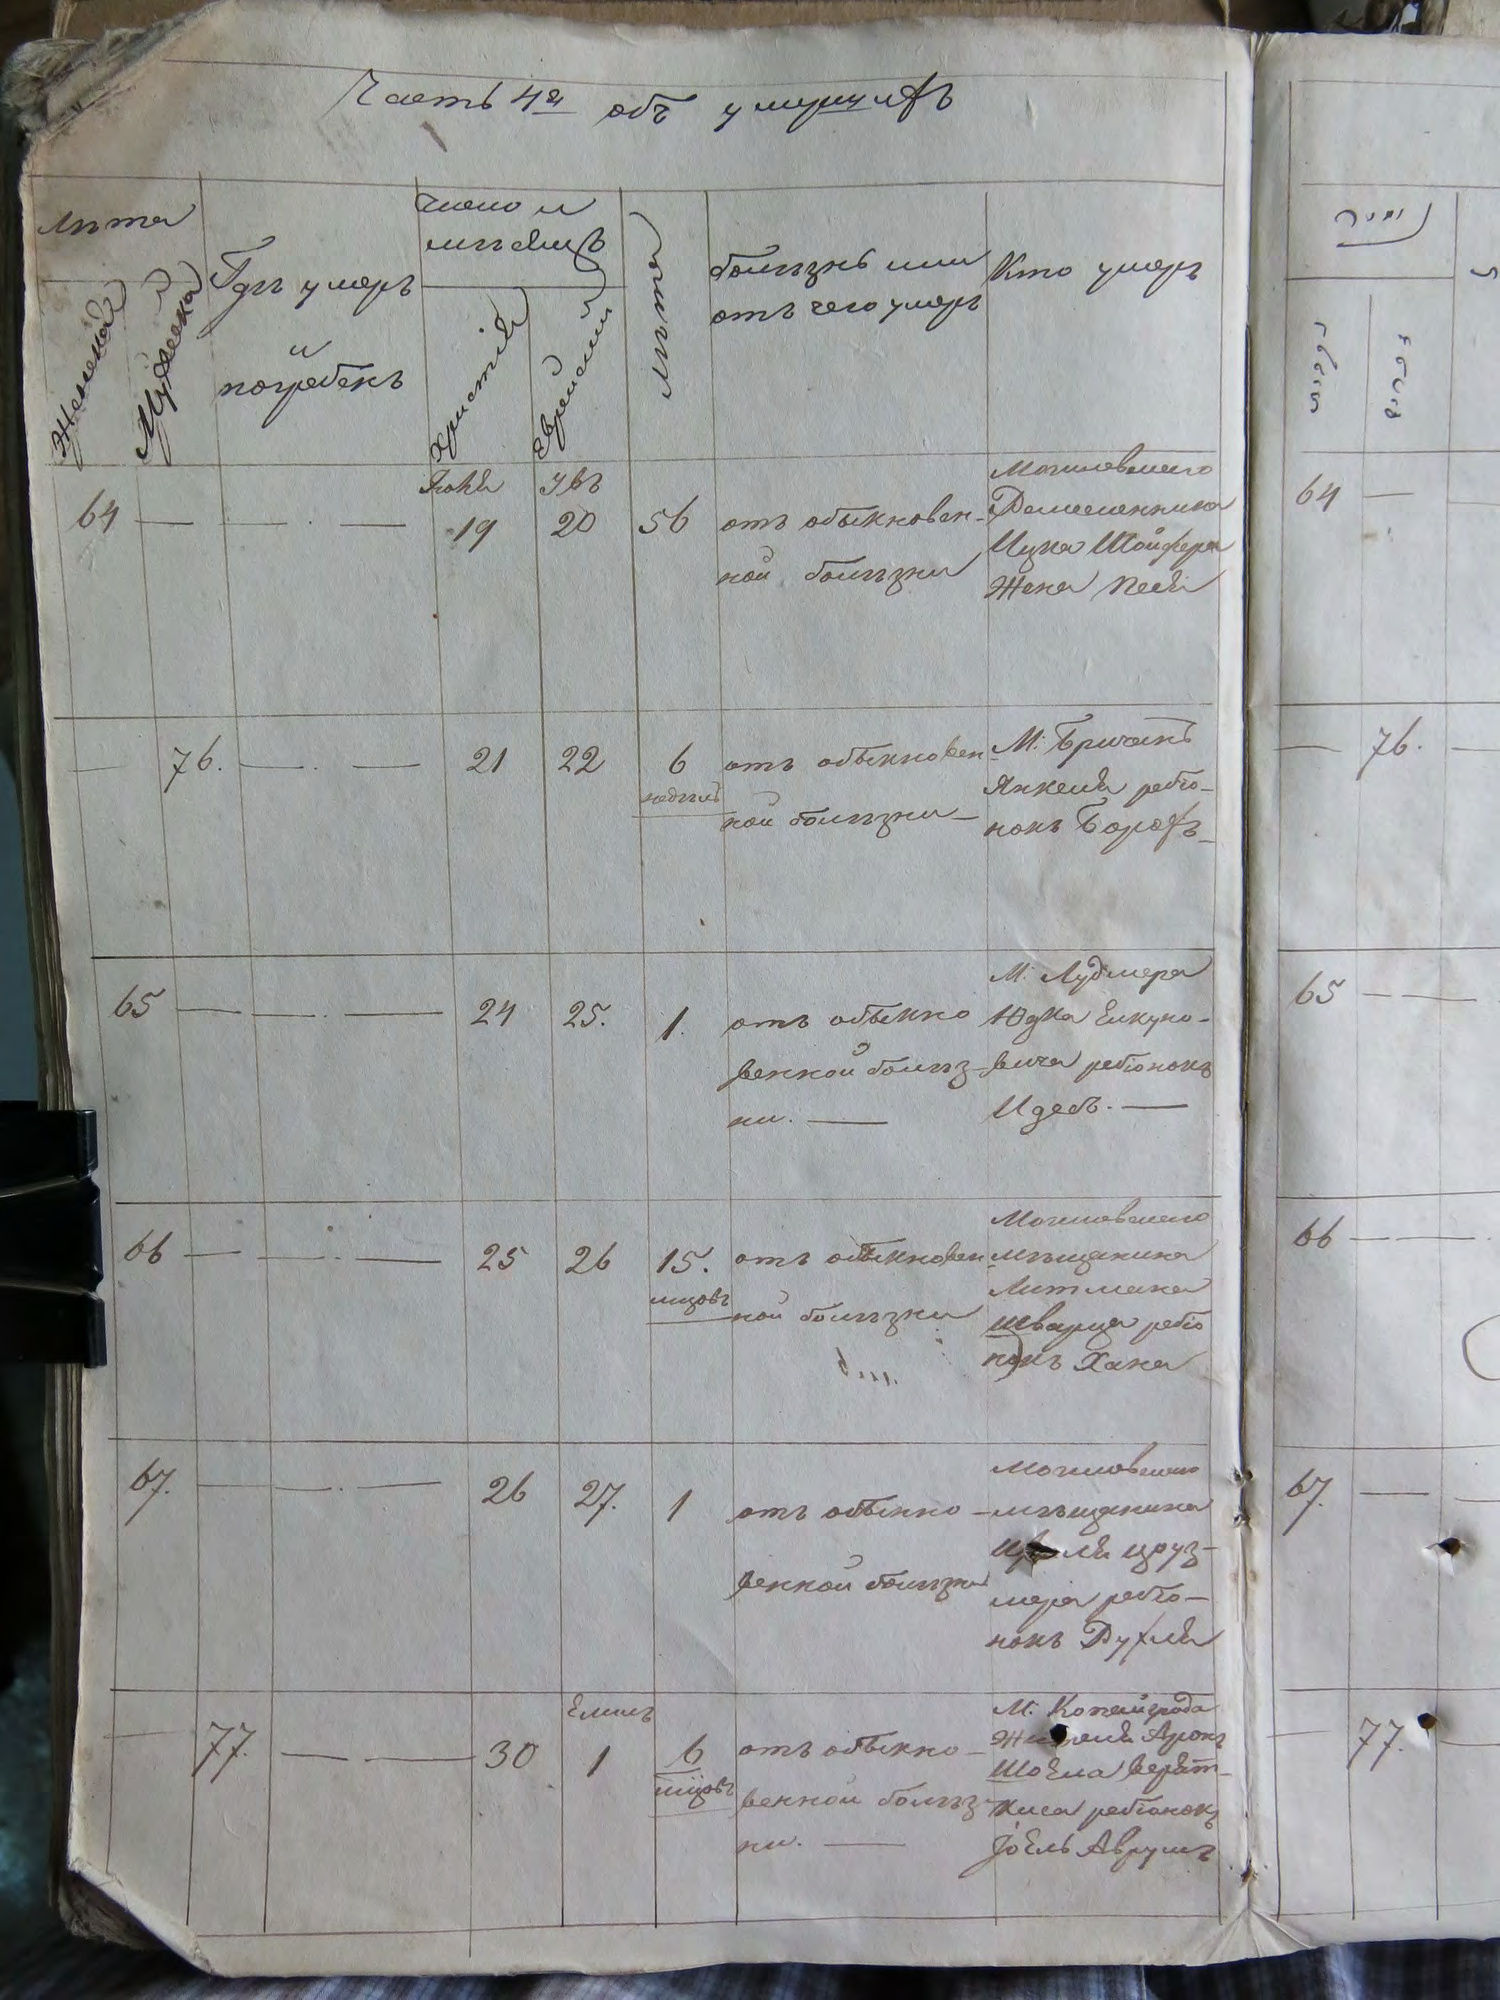 Часть 4я объ умершихъ
лѣта
Женска
Мужеска
Гдѣ умеръ
и
погребенъ
число и
мѣсяцъ
христія
еврейскій
лѣта
болѣзнь или
отъ чего умеръ
Кто умеръ
64 — — · — 19 20 56
отъ обыкновен-
ной болѣзни
Могилевскаго
Ицка Шойфера
Жена Песя
— 76. — · — 21 22 6
недѣль
отъ обыкновен
ной болѣзни —
М: Бричанъ
Янкеля ребіо-
нокъ Борохъ —
65 — — · — 24 25. 1.
отъ обыкно
венной болѣз-
ни. —
М: Лудмера
Юдка
вича ребіонокъ
66 — — · — 25 26 15.
мцовъ
отъ обыкновен
ной болѣзни
Могилевскаго
мѣщанина
Литмана
Шварца ребіо
нокъ Хана
67. — — · — 26 27. 1
отъ обыкно-
венной болѣзни
Могилевскаго
мѣщанина
мера ребіо-
нокъ Рухля
Елилъ
— 77. — — 30 1 6
мцовъ
отъ обыкно-
венной болѣз-
ни. —
М: Копайгрода
Жителя Аронъ
Шоела
ребіонокъ
Іоель Аврумъ
64 —
— 76. —
65 — —
66 — —
67. — —
— 77.